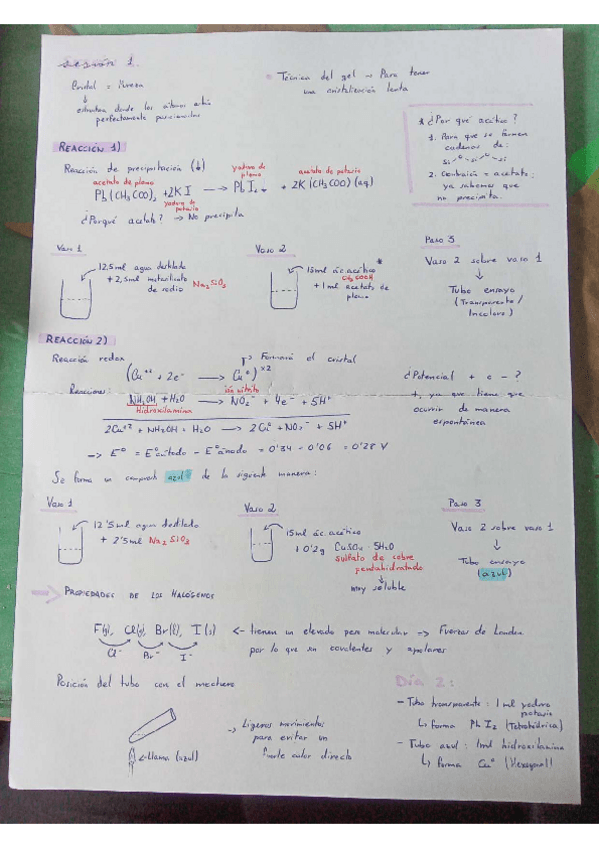 Sesión 1.
Cristal = Pureza
↓
estructura donde los átomos están
perfectamente posicionados
* Técnica del gel → Para tener
una cristalización lenta
* ¿Por qué acético?
1. Para que se formen
cadenas de:
Si O Si O Si
2. Contraión = acetato;
ya sabemos que
no precipita.
REACCIÓN 1)
Reacción de precipitación (↓)
acetato de plomo
yoduro de
plomo
acetato de potasio
Pb(CH3COO)2 + 2KI → PbI2↓ + 2K(CH3COO)(aq)
yoduro de
potasio
¿Porqué acetato? → No precipita
Vaso 1
12,5ml agua destilada
+ 2,5ml metasilicato
de sodio Na2SiO3
Vaso 2
15ml ác. acético *
CH3COOH
+ 1ml acetato de
plomo
Paso 3
Vaso 2 sobre vaso 1
↓
Tubo ensayo
(Transparente /
Incoloro)
REACCIÓN 2)
Reacción redox
Formará el cristal
(Cu+2 + 2e- → Cu0) x2
Reacciones:
ión nitrito
NH2OH + H2O → NO2- + 4e- + 5H+
Hidroxilamina
2Cu+2 + NH2OH + H2O → 2Cu0 + NO2- + 5H+
→ E0 = E0cátodo - E0ánodo = 0'34 - 0'06 = 0'28 V
¿Potencial + o - ?
+, ya que tiene que
ocurrir de manera
espontánea
Se forma un compuesto azul de la siguiente manera:
Vaso 1
12'5ml agua destilada
+ 2'5ml Na2SiO3
Vaso 2
15ml ác. acético
+ 0'2g CuSO4 · 5H2O
sulfato de cobre
pentahidratado
↓
muy soluble
Paso 3
Vaso 2 sobre vaso 1
↓
Tubo ensayo
(azul)
→ PROPIEDADES DE LOS HALÓGENOS
F(g), Cl(g), Br(l), I(s)
Cl- Br- I-
<- tienen un elevado peso molecular => Fuerzas de London
por lo que son covalentes y apolares
Posición del tubo con el mechero
<- Llama (azul)
→ Ligeros movimientos
para evitar un
fuerte calor directo
Día 2:
- Tubo transparente: 1ml yoduro
potasio
↳ forma PbI2 (Tetrahédrica)
- Tubo azul: 1ml hidroxilamina
↳ forma Cu0 (Hexagonal)